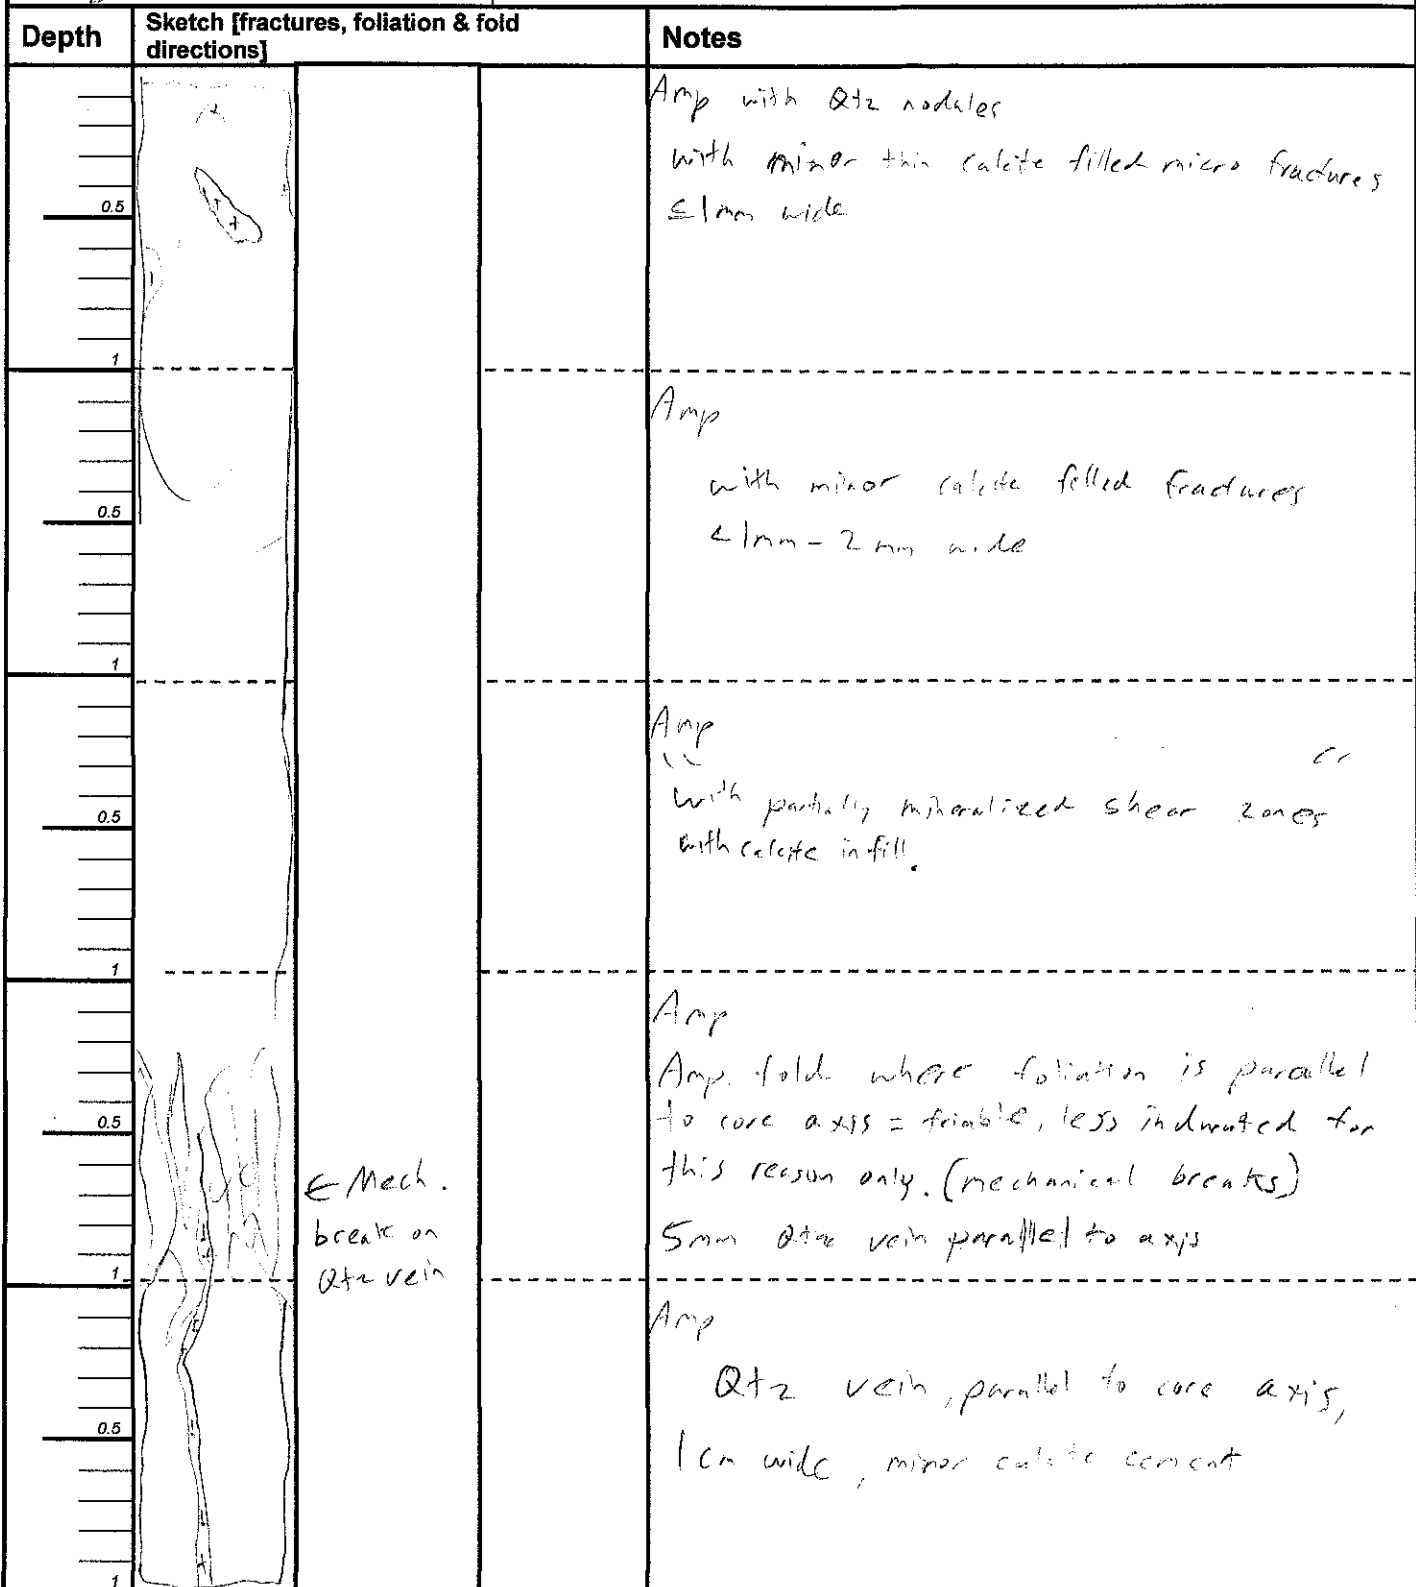 Depth
Sketch [fractures, foliation & fold
directions]
Notes
Amp with Qtz nodules
with minor thin calcite filled micro fractures
≤1mm wide
0.5
1
Amp
with minor calcite filled fractures
<1mm - 2mm wide
0.5
1
Amp
with partially mineralized shear zones
with calcite infill.
0.5
1
Amp
Amp. fold where foliation is parallel
to core axis = friable, less indurated for
this reason only. (mechanical breaks)
5mm Qtz vein parallel to axis
0.5
← Mech.
break on
Qtz vein
1
Amp
Qtz vein, parallel to core axis,
1cm wide, minor calcite cement
0.5
1